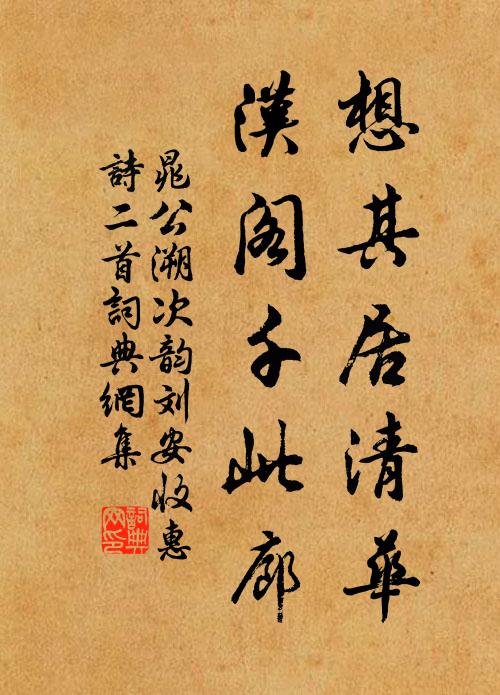 想其居清華
漢閣千此廊
晁公溯次韵刘安收惠
詩二首詞典網集